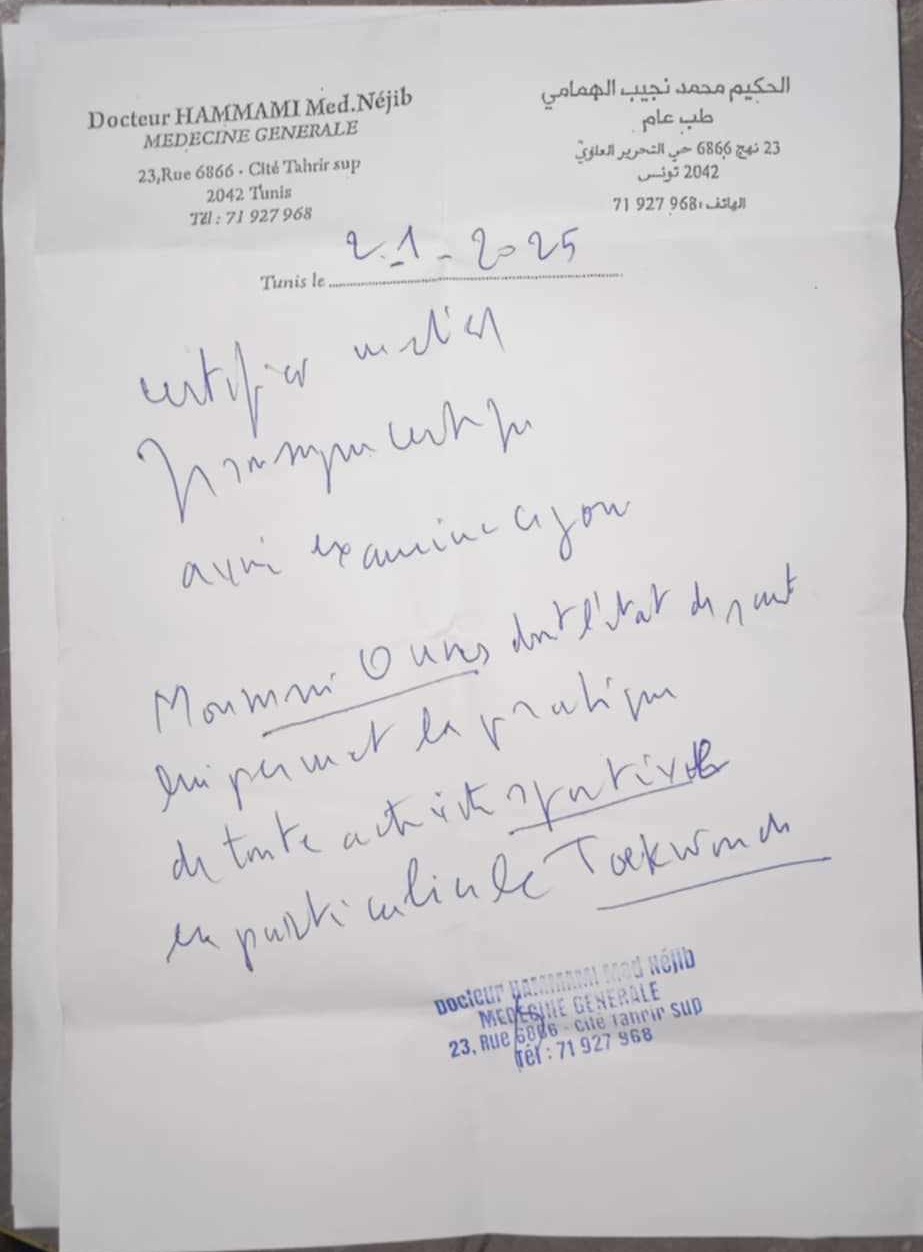 Docteur HAMMAMI Med.Néjib
MEDECINE GENERALE
23,Rue 6866 - Cité Tahrir sup
2042 Tunis
Tél : 71 927 968
الحكيم محمد نجيب الهمامي
طب عام
23 نهج 6866 حي التحرير العلوي
2042 تونس
الهاتف : 71 927 968
Tunis le 2.1-2025
certificat médical
certifie
avoir examiné ce jour
dont l'état de santé
lui permet la pratique
de toute activité sportive
en particulier le Taekwondo
Docteur HAMMAMI Med Néjib
MEDECINE GENERALE
23, Rue 6866 - Cité Tahrir sup
Tél : 71 927 968